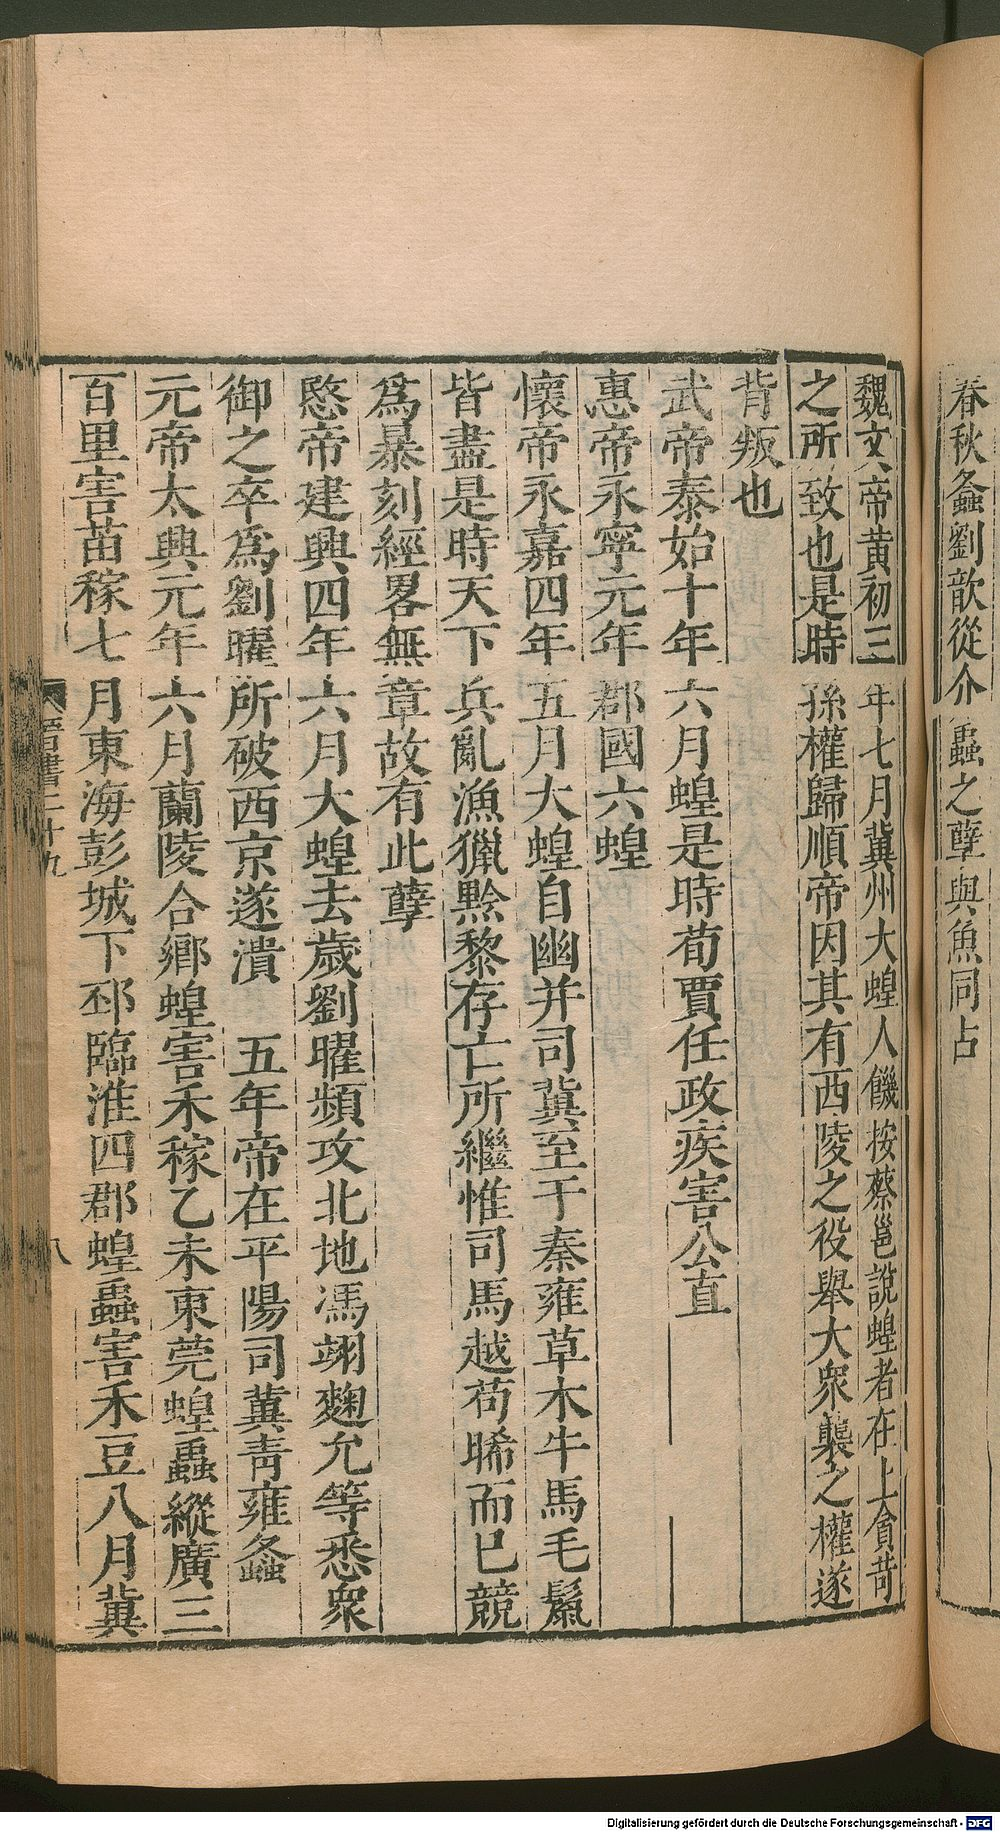 春秋螽劉歆從介蟲之孽與魚同占
魏文帝黃初三年七月冀州大蝗人饑按蔡邕說蝗者在上貪苛
之所致也是時孫權歸順帝因其有西陵之役舉大衆襲之權遂
背叛也
武帝泰始十年六月蝗是時荀賈任政疾害公直
惠帝永寧元年郡國六蝗
懷帝永嘉四年五月大蝗自幽并司冀至于秦雍草木牛馬毛鬣
皆盡是時天下兵亂漁獵黔黎存亡所繼惟司馬越苟晞而已競
爲暴刻經畧無章故有此孽
愍帝建興四年六月大蝗去歲劉曜頻攻北地馮翊麴允等悉衆
御之卒爲劉曜所破西京遂潰 五年帝在平陽司冀青雍螽
元帝太興元年六月蘭陵合鄉蝗害禾稼乙未東莞蝗蟲縱廣三
百里害苗稼七月東海彭城下邳臨淮四郡蝗蟲害禾豆八月冀
晉書二十九
八
Digitalisierung gefördert durch die Deutsche Forschungsgemeinschaft - DFG